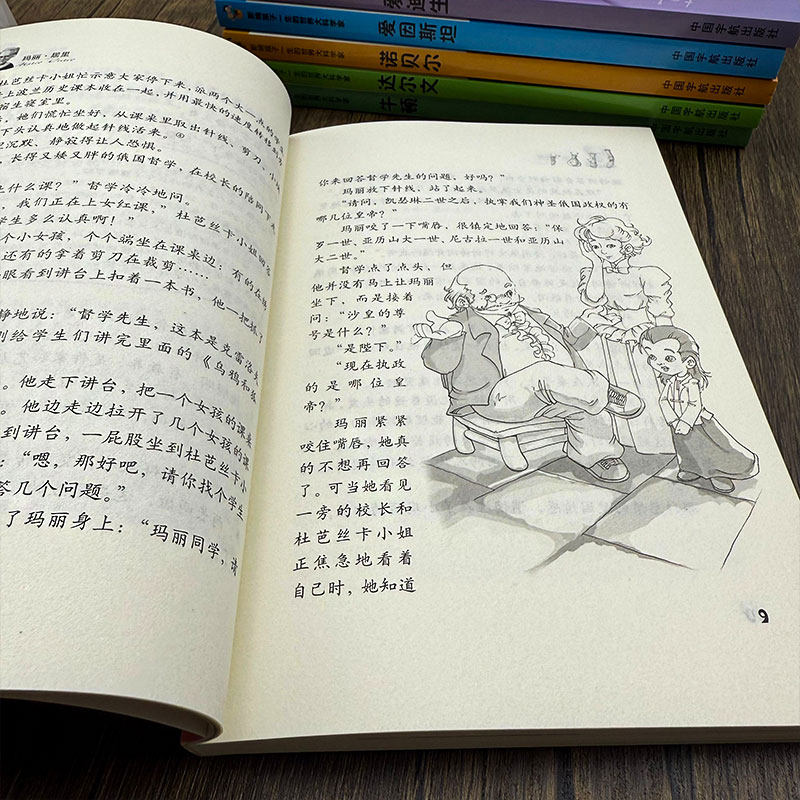 爱迪生
影响孩子一生的世界大科学家
爱因斯坦
中国宇航出版社
影响孩子一生的世界大科学家
诺贝尔
中国宇航出版社
达尔文
中国宇航出版社
牛顿
中国宇航出版社
玛丽·居里
杜芭丝卡小姐忙示意大家停下来，派两个大一点的学
上波兰历史课本收在一起，并用最快的速度转移到
招生寝室里。
她们慌忙坐好，从课桌里取出针线、剪刀、小
下头认真地做起针线活来。④
沉默、静寂得让人恐惧。
长得又矮又胖的俄国督学，在校长的陪同下来
上什么课？”督学冷冷地问。
我们正在上女红课，”杜芭丝卡小姐回答
学生多么认真啊！”
个小女孩，个个端坐在课桌边：有的在
还有的拿着剪刀在裁剪……
眼看到讲台上扣着一本书，他一把抓了
静地说：“督学先生，这本是克雷洛夫
别给学生们讲完里面的《乌鸦和狐
。他走下讲台，把一个女孩的课桌
。他边走边拉开了几个女孩的课
到讲台，一屁股坐到杜芭丝卡小
：“嗯，那好吧，请你找个学生
答几个问题。”
了玛丽身上：“玛丽同学，请
你来回答督学先生的问题，好吗？”
玛丽放下针线，站了起来。
“请问，凯瑟琳二世之后，执掌我们神圣俄国政权的有
哪几位皇帝？”
玛丽咬了一下嘴唇，很镇定地回答：“保
罗一世、亚历山大一世、尼古拉一世和亚历山
大二世。”
督学点了点头，但
他并没有马上让玛丽
坐下，而是接着
问：“沙皇的尊
号是什么？”
“是陛下。”
“现在执政
的是哪位皇
帝？”
玛丽紧紧
咬住嘴唇，她真
的不想再回答
了。可当她看见
一旁的校长和
杜芭丝卡小姐
正焦急地看着
自己时，她知道
9